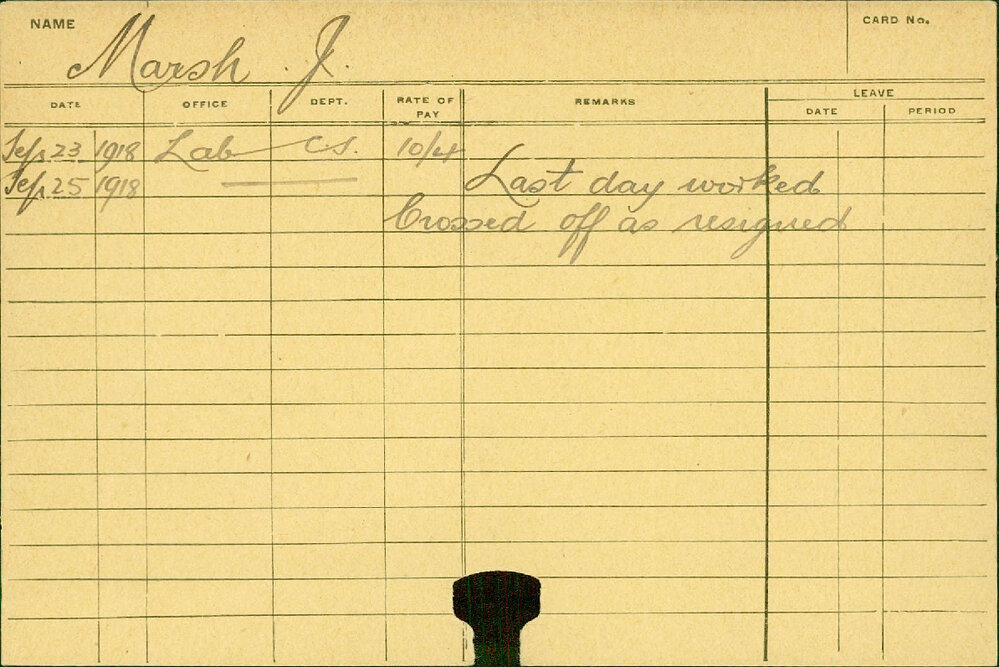 NAME Marsh J. CARD No.
DATE OFFICE DEPT. RATE OF PAY REMARKS LEAVE
DATE PERIOD
Sep 23 1918 Lab C.S. 10/4
Sep 25 1918 Last day worked
Crossed off as resigned